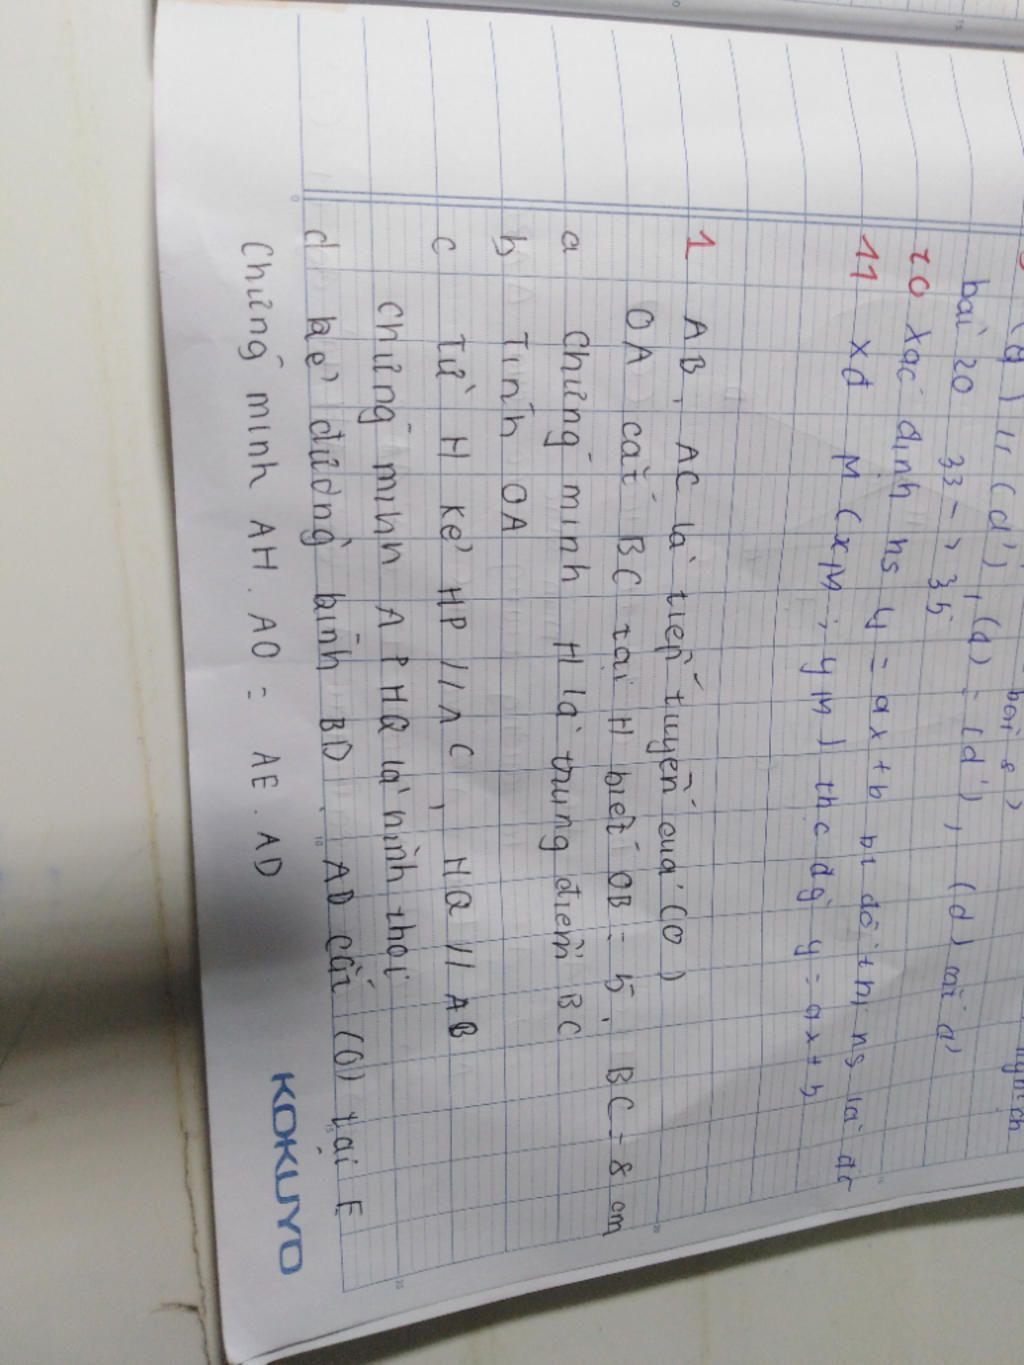 bài 8>
(d) // (d'), (d) = (d'), (d) cắt d'
bài 20 33 -> 35
10 Xác định hs y = ax + b
11 xđ M (xM ; yM) thc đg y = ax + b
1 AB, AC là tiếp tuyến của (O)
OA cắt BC tại H biết OB = 5, BC = 8 cm
a Chứng minh H là trung điểm BC
b Tính OA
c Từ H kẻ HP // AC, HQ // AB
chứng minh APHQ là hình thoi
d kẻ đường kình BD. AD cắt (O) tại E
Chứng minh AH. AO = AE. AD
KOKUYO